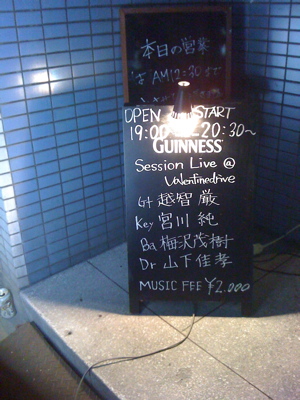 本日の営業
は AM12:30 まで
OPEN START
19:00 20:30～
GUINNESS
Session Live @
Valentinedrive
Gt 越智 厳
Key 宮川 純
Ba 梅沢茂樹
Dr 山下佳孝
MUSIC FEE ¥2.000